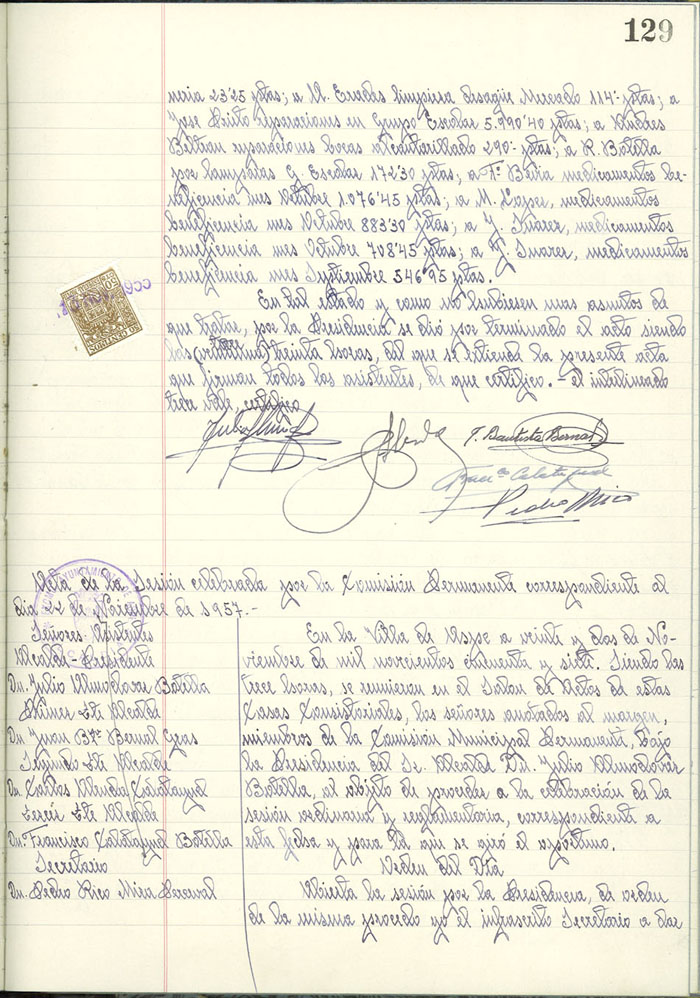 129
neria 23'25 ptas; a M. Eradas limpieza desagüe Mercado 114'- ptas; a
Jose Brito reparaciones en Grupo Escolar 5.990'40 ptas; a Andres
Beltran reparaciones bocas alcantarillado 290'- ptas; a R. Botella
por lamparas G. Escolar 172'30 ptas; a Fº Beviá medicamentos be-
neficencia mes Octubre 1.076'45 ptas; a M. Lopez, medicamentos
beneficencia mes Octubre 883'30 ptas; a J. Suarez, medicamentos
beneficencia mes Octubre 708'45 ptas; a J. Suarez, medicamentos
beneficencia mes Septiembre 546'95 ptas.
En tal estado y como no hubiesen mas asuntos de
que tratar, por la Presidencia se dió por terminado el acto siendo
las trece treinta horas, del que se extiende la presente acta
que firman todos los asistentes, de que certifico.- el interlineado
trece vale, certifico
J. Bautista Bernal
Franco Calatayud
Pedro Rico
50 CENTIMOS
Acta de la Sesión celebrada por la Comisión Permanente correspondiente al
dia 22 de Noviembre de 1957.-
AYUNTAMIENTO DE
Señores Asistentes
Alcalde-Presidente
Dn. Julio Almodovar Botella
Primer Tte Alcalde
Dn Juan Bta Bernal
Segundo Tte Alcalde
Dn. Carlos Calatayud
Tercer Tte Alcalde
Dn. Francisco Calatayud Botella
Secretario
Dn. Pedro Rico Mira-Perceval
En la Villa de Aspe a veinte y dos de No-
viembre de mil novecientos cincuenta y siete. Siendo las
trece horas, se reunieron en el Salon de Actos de estas
Casas Consistoriales, los señores anotados al margen,
miembros de la Comisión Municipal Permanente, bajo
la Presidencia del Sr. Alcalde Dn. Julio Almodovar
Botella, al objeto de proceder a la celebración de la
sesión ordinaria y reglamentaria, correspondiente a
esta fecha y para la que se giró el oportuno.
Orden del Dia
Abierta la sesión por la Presidencia, de orden
de la misma procedo yo el infrascrito Secretario a dar